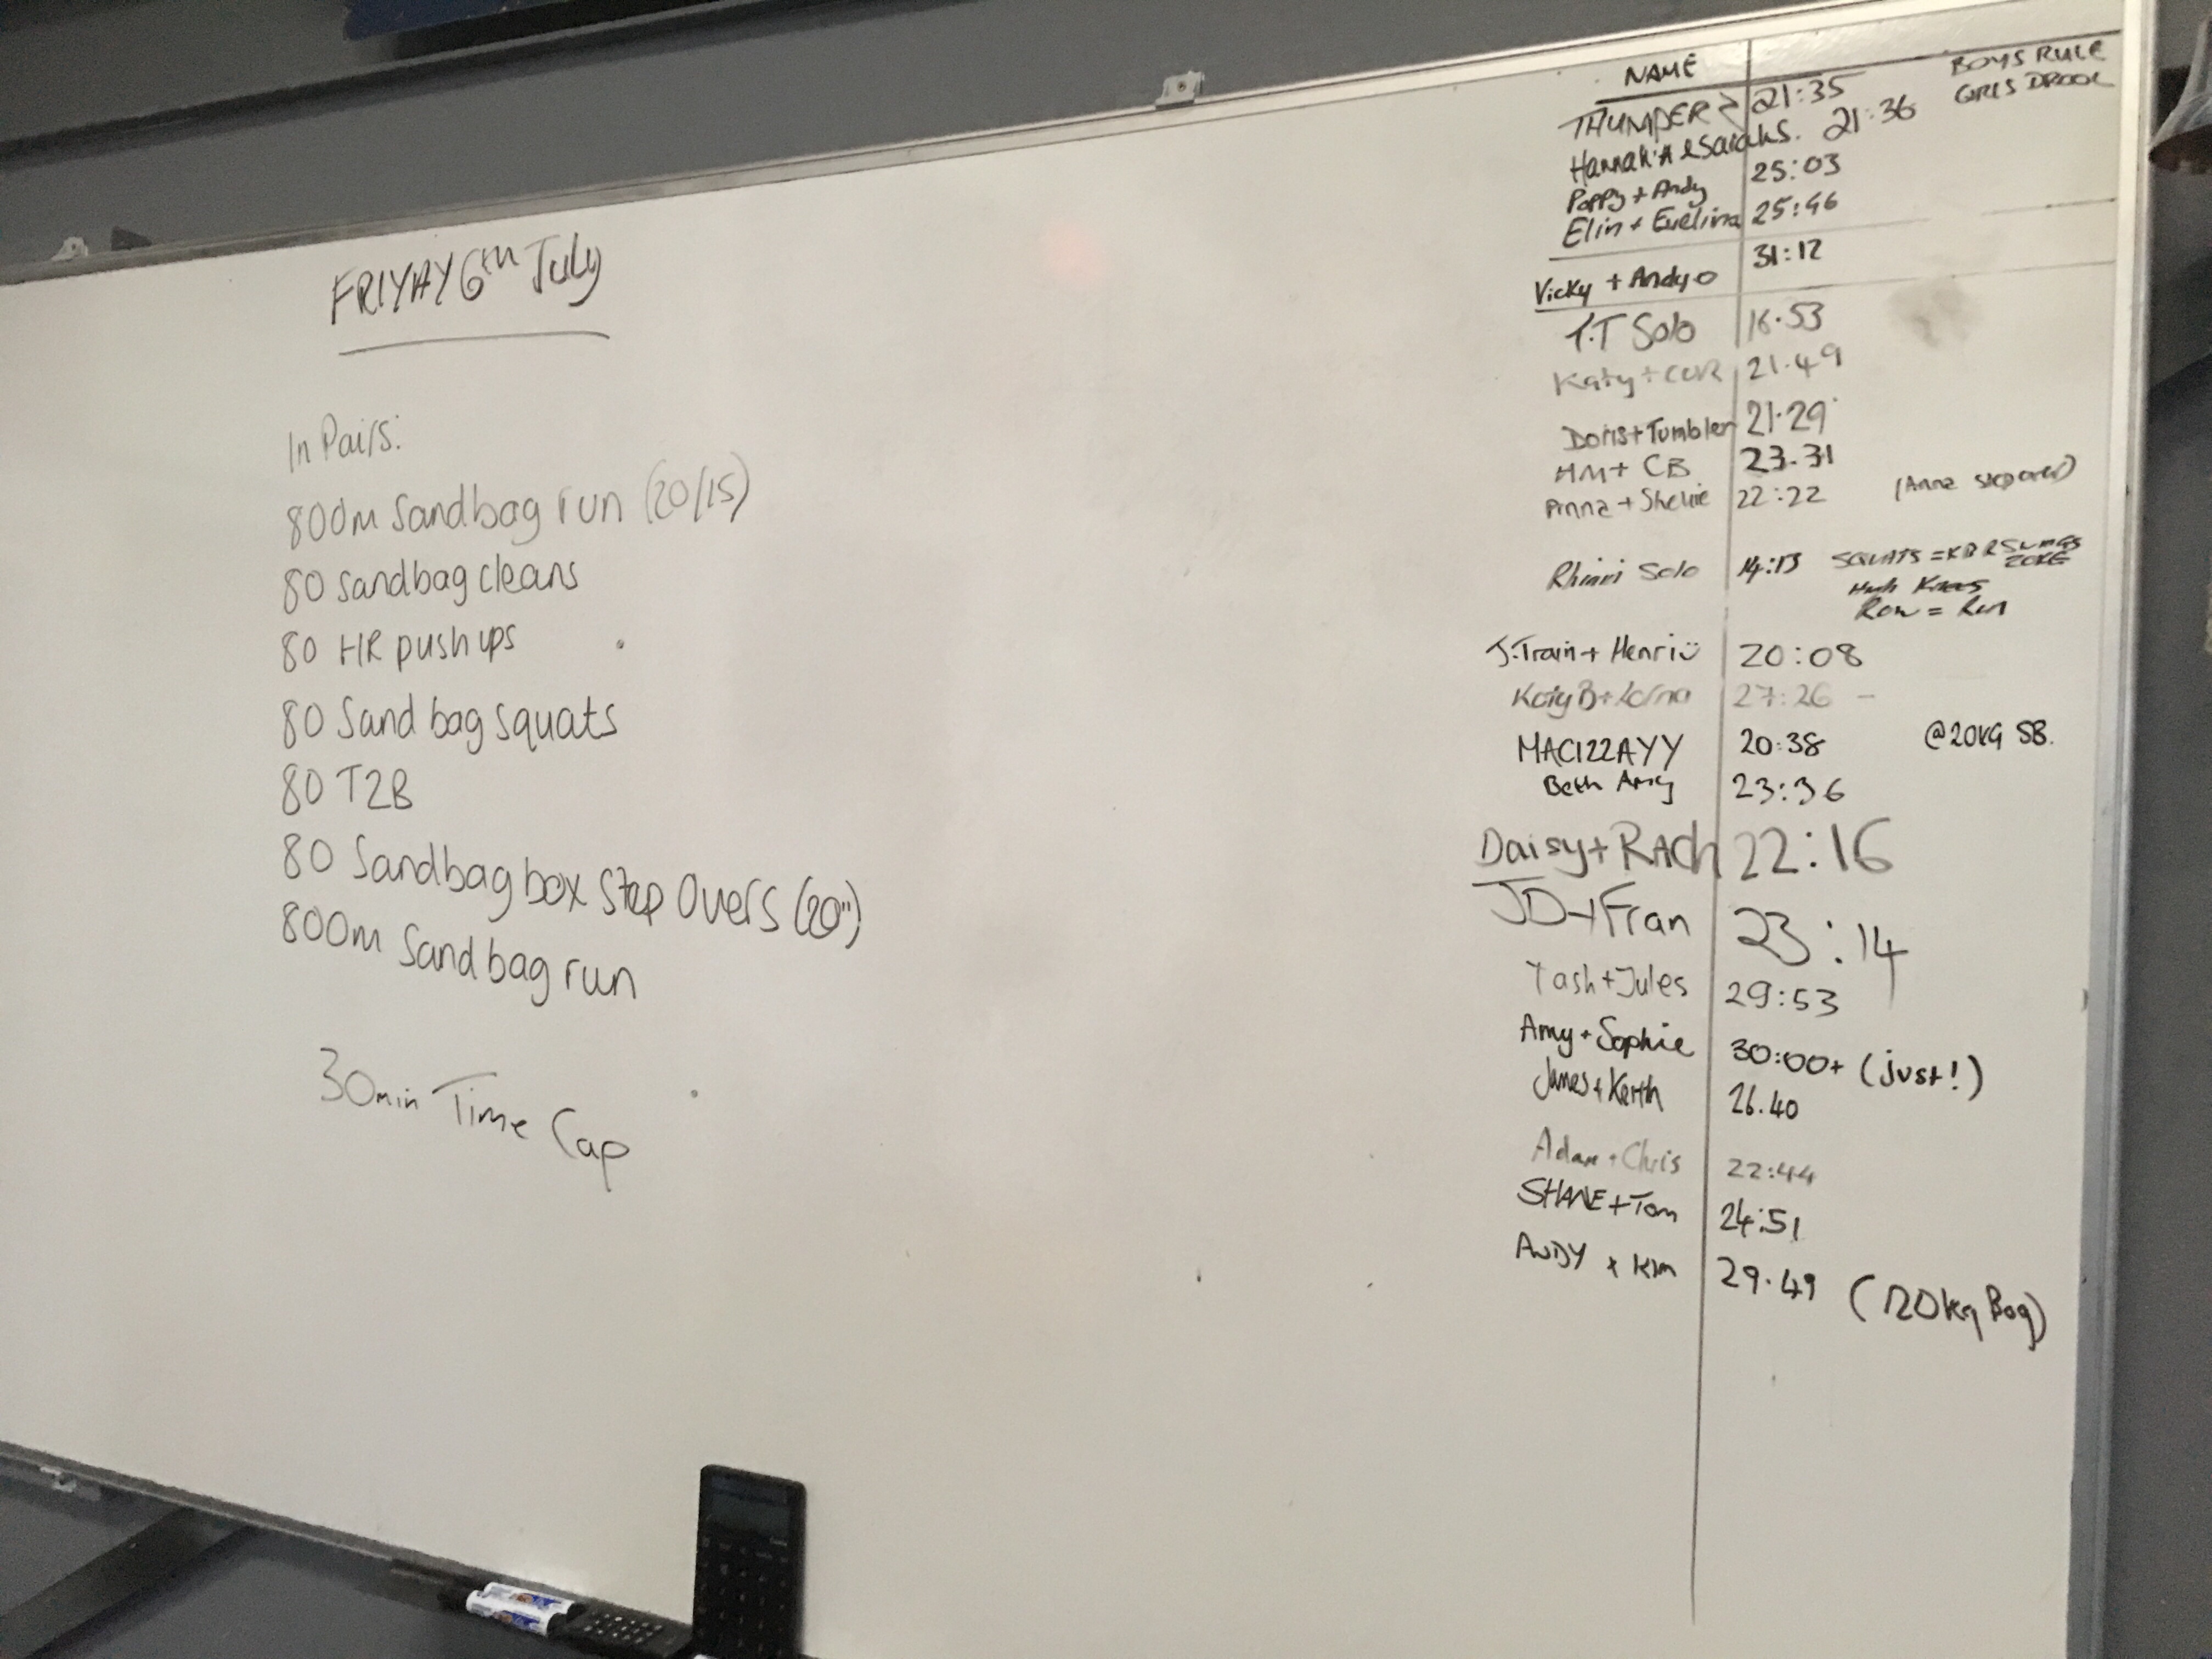 FRIYAY 6th July
In Pairs:
800m Sandbag run (20/15)
80 sandbag cleans
80 HR push ups
80 Sandbag squats
80 T2B
80 Sandbag box Step Overs (20")
800m Sandbag run
30min Time Cap
NAME
BOYS RULE
GIRLS DROOL
THUMPER 2 21:35
Hannah.A & SarahS. 21:36
Poppy + Andy 25:03
Elin + Evelina 25:46
Vicky + Andy O 31:12
T.T Solo 16.53
Katy + 21.49
Doris + Tumbler 21.29
HM + CB 23.31
Anna + Shelie 22:22 (Anna step over)
Solo 14:13 SQUATS =
20KG
High Knees
Row = Run
J.Train + Henri 20:08
Katy B + Lorna 27:26 -
MACIZZAYY 20:38 @20KG SB.
Beth Amy 23:36
Daisy + RAch 22:16
JD + Fran 23:14
Tash + Jules 29:53
Amy + Sophie 30:00+ (just!)
James + Keith 26.40
Adam + Chris 22:44
SHANE + Tom 24:51
ANDY + Kim 29.49 (120kg Bag)